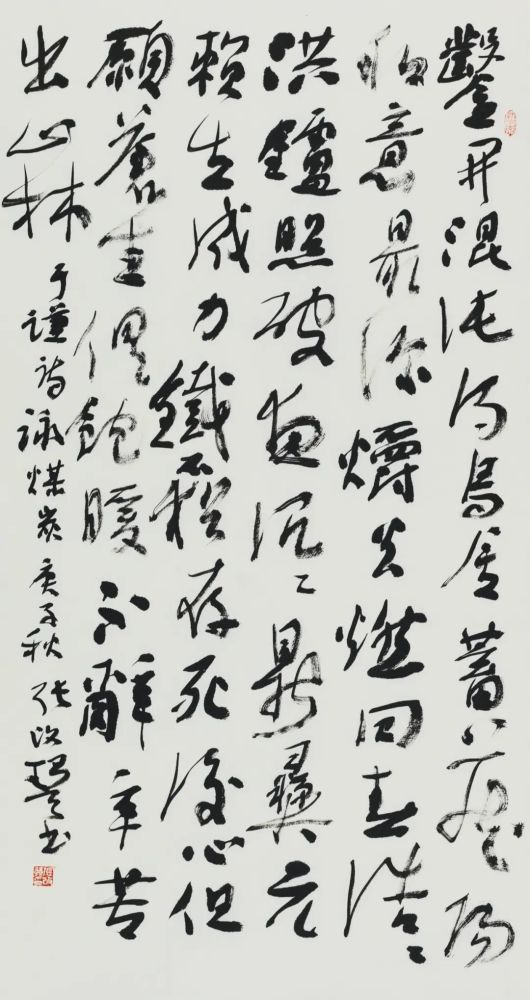 鑿开混沌得烏金蓄藏陽
和意最深爝火燃回春浩〻
洪鑪照破夜沉〻鼎彝元
賴生成力鐵石猶存死後心但
願蒼生俱飽暖不辭辛苦
出山林
于謙詩詠煤炭 庚子秋 张改琴书